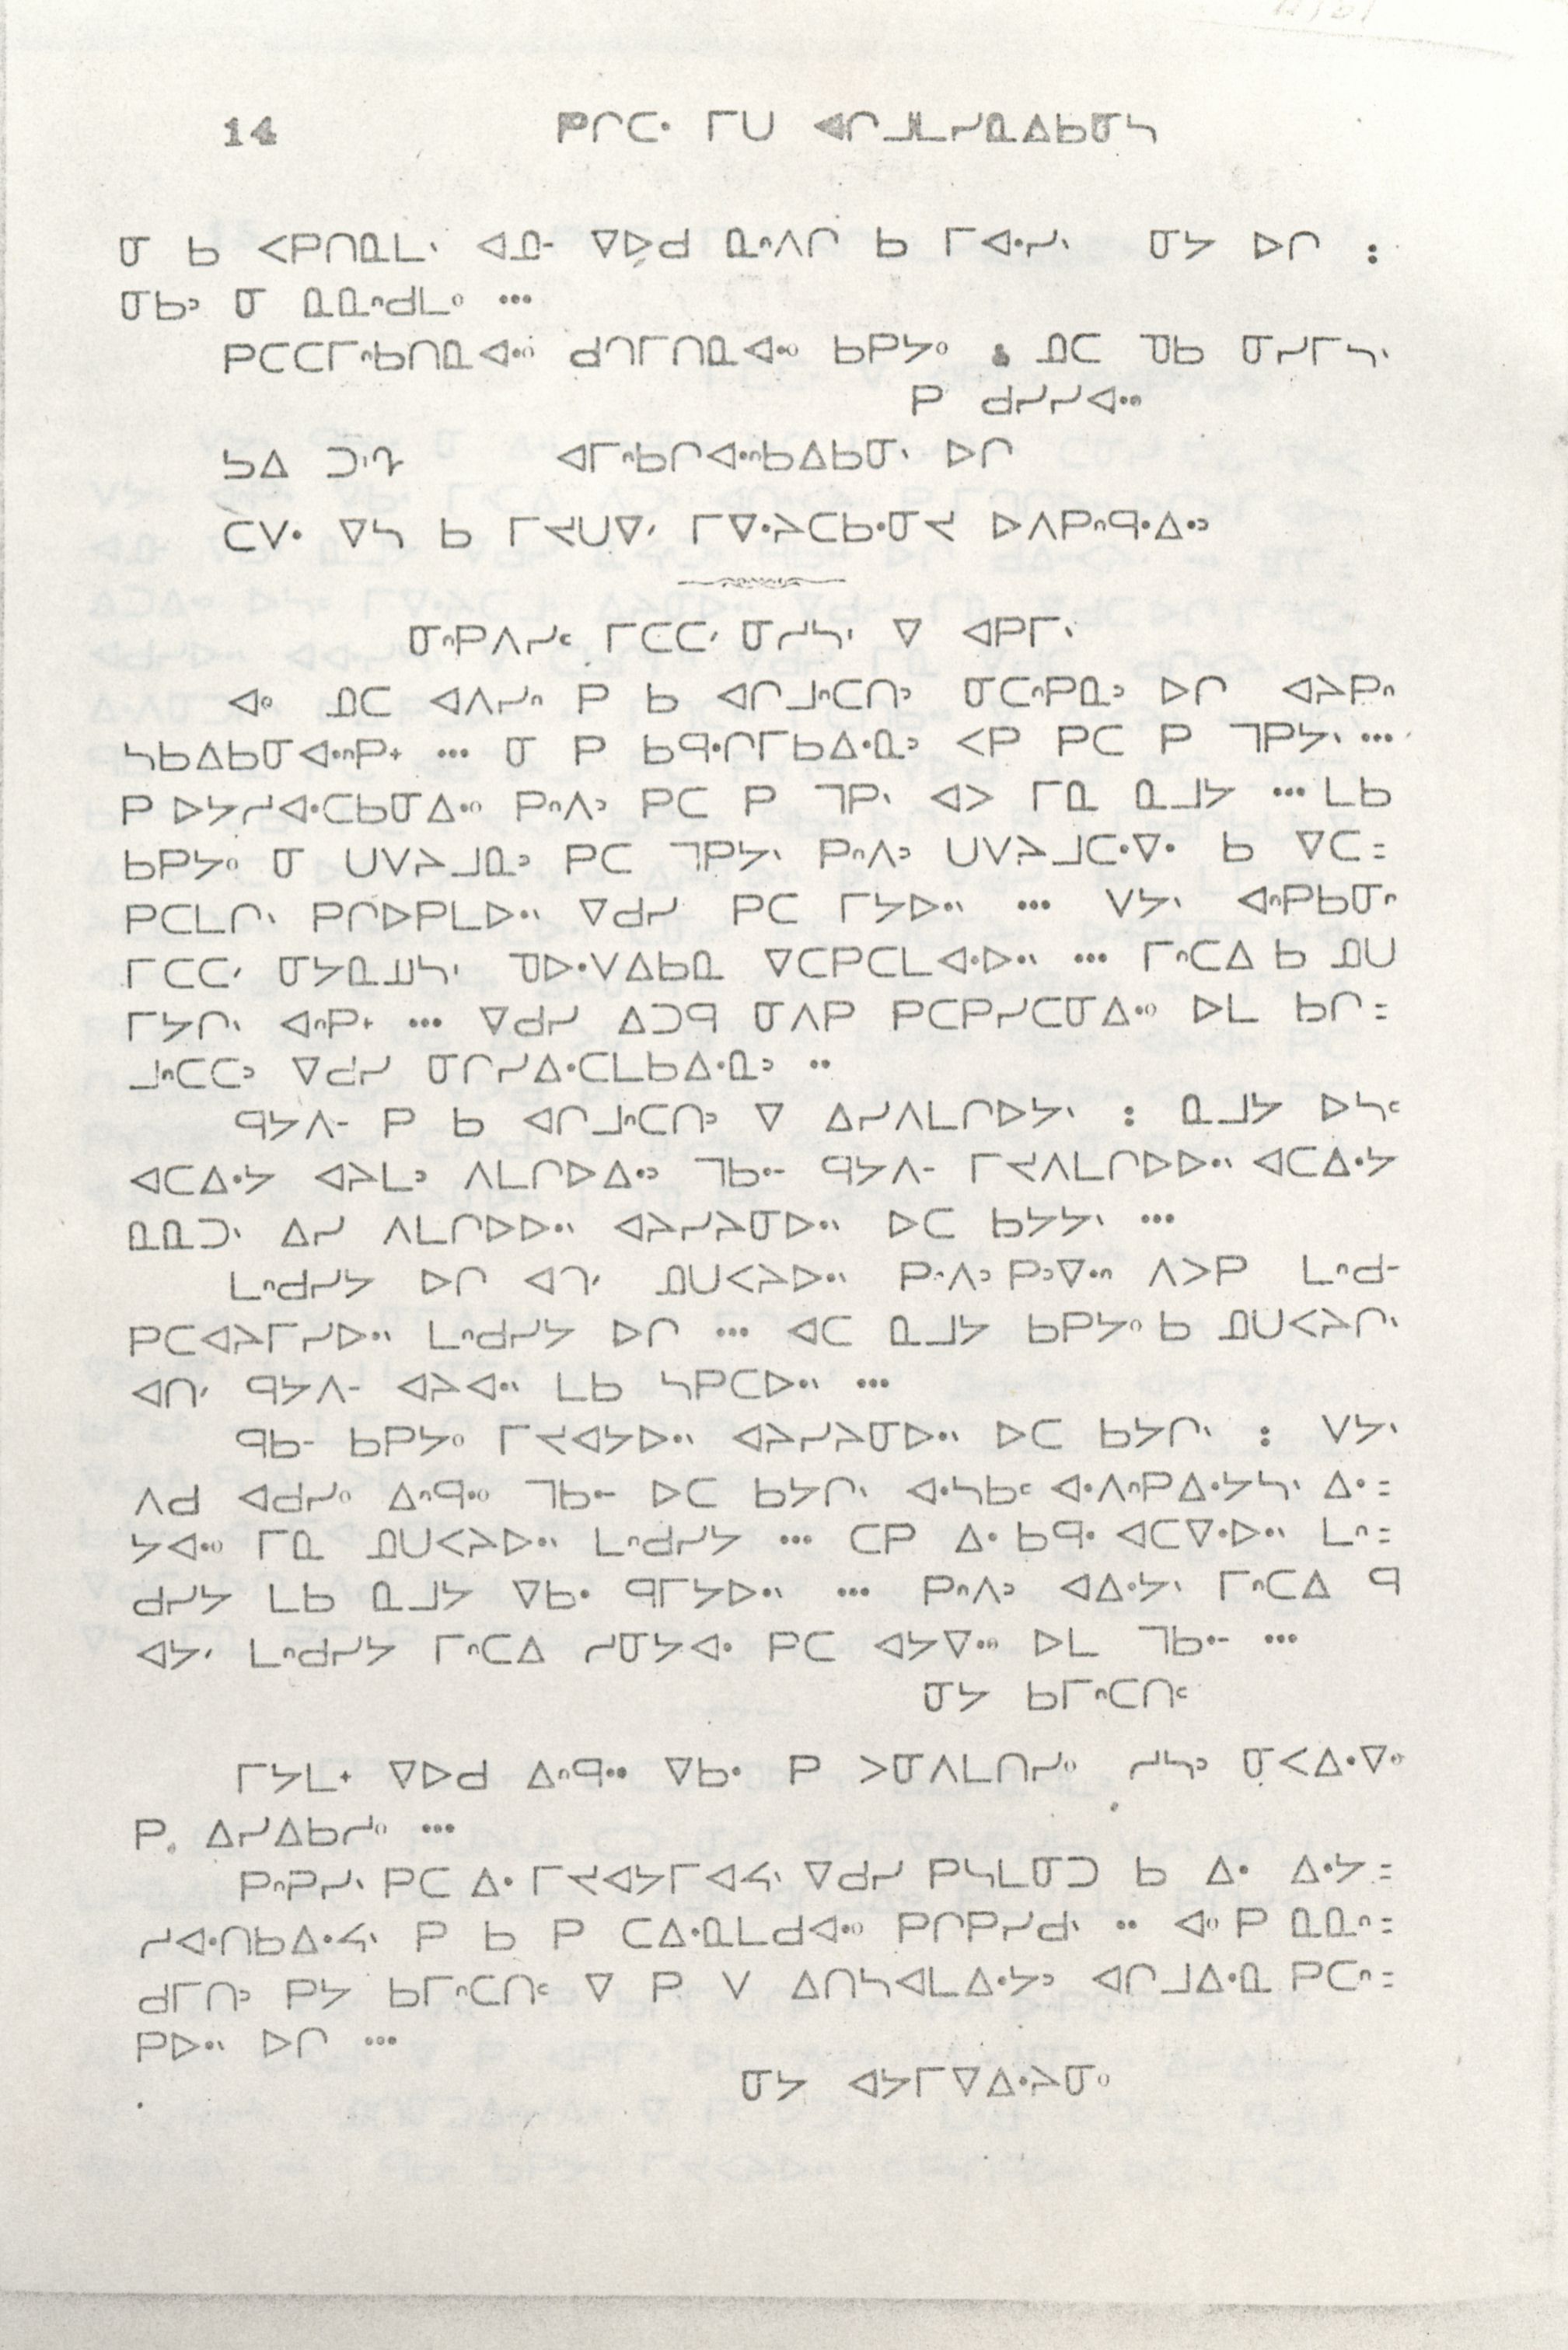 14 ᑭᒋᑕᐧ ᒥᑌ ᐊᒋᒧᒪᓯᓇᐃᑲᓂᓴ
ᓂ ᑲ ᐸᑭᑎᓇᒪᐠ ᐊᓄᐨ ᐁᐅᑯ ᓇᐧᐢᐱᒋ ᑲ ᒥᐊᐧᓯᐠ ᓂᔭ ᐅᒋ :
ᓂᑲᐣ ᓂ ᓇᓇᐢᑯᒪᐤ ...
ᑭᑕᑕᒥᐢᑲᑎᓇᐊᐧᐤ ᑯᑎᒥᑎᓇᐊᐧᐤ ᑲᑭᔭᐤ & ᓄᑕ ᑫᑲ ᓂᓯᒥᓴᐠ
ᑭ ᑯᓯᓯᐊᐧᐤ
ᓴᐃ ᑐᐟᒉ ᐊᒥᐢᑲᒋᐊᐧᐢᑲᐃᑲᓂᐠ ᐅᒋ
ᑕᐯᐧ ᐁᓴ ᑲ ᒥᔪᑌᐁᐟ ᒥᐁᐧᔨᑕᑲᐧᓂᔪ ᐅᐱᑭᐢᑫᐧᐃᐧᐣ
ᓂᐢᑭᐱᓯᒼ ᒥᑕᑕᐟ ᓂᓯᓴᑊ ᐁ ᐊᑭᒥᐠ
ᐊᐤ ᓄᑕ ᐊᐱᓯᐢ ᑭ ᑲ ᐊᒋᒧᐢᑕᑎᐣ ᓂᑕᐢᑭᓇᐣ ᐅᒋ ᐊᔨᑭᐢ
ᓴᑲᐃᑲᓂᐊᐧᐢᑭᕀ ... ᓂ ᑭ ᑲᑫᐧᒋᒥᑲᐃᐧᓇᐣ ᐸᑭ ᑭᑕ ᑭ ᒣᑭᔭᐠ ...
ᑭ ᐅᔭᓯᐊᐧᑕᑲᓂᐃᐧᐤ ᑭᐢᐱᐣ ᑭᑕ ᑭ ᒣᑭᐠ ᐊᐳ ᒥᓇ ᓇᒧᔭ ... ᒪᑲ
ᑲᑭᔭᐤ ᓂ ᑌᐯᔨᒧᓇᐣ ᑭᑕ ᒣᑭᔭᐠ ᑭᐢᐱᐣ ᑌᐯᔨᒧᑕᐧᐁᐧ ᑲ ᐁᑕ=
ᑭᑕᒪᒋᐠ ᑭᒋᐅᑭᒪᐅᐧᐠ ᐁᑯᓯ ᑭᑕ ᒥᔭᐅᐧᐠ ... ᐯᔭᐠ ᐊᐢᑭᑲᓂᐢ
ᒥᑕᑕᐟ ᓂᔭᓇᓄᓴᑊ ᑫᐅᐧᐯᐃᑲᓇ ᐁᑕᑭᑕᒪᐊᐧᐅᐧᐠ ... ᒥᐢᑕᐃ ᑲ ᓄᑌ
ᒥᔭᒋᐠ ᐊᐢᑭᕀ ... ᐁᑯᓯ ᐃᑐᑫ ᓂᐱᑭ ᑭᑕᑭᓯᑕᓂᐃᐧᐤ ᐅᒪ ᑲᒋ=
ᒧᐢᑕᑕᐣ ᐁᑯᓯ ᓂᒋᓯᐃᐧᑕᒪᑲᐃᐧᓇᐣ ..
ᑫᔭᐱᐨ ᑭ ᑲ ᐊᒋᒧᐢᑕᑎᐣ ᐁ ᐃᓯᐱᒪᒋᐅᔭᐠ : ᓇᒧᔭ ᐅᓴᒼ
ᐊᑕᐃᐧᔭ ᐊᔨᒪᐣ ᐱᒪᒋᐅᐃᐧᐣ ᒣᑲᐧᐨ ᑫᔭᐱᐨ ᒥᔪᐱᒪᒋᐅᐅᐧᐠ ᐊᑕᐃᐧᔭ
ᓇᓇᑐᐠ ᐃᓯ ᐱᒪᒋᐅᐅᐧᐠ ᐊᔨᓯᔨᓂᐅᐧᐠ ᐅᑕ ᑲᔭᔭᐠ ...
ᒪᐢᑯᓯᔭ ᐅᒋ ᐊᑎᐟ ᓄᑌᐸᔨᐅᐧᐠ ᑭᐢᐱᐣ ᑭᐣᐁᐧᐢ ᐱᐳᑭ ᒪᐢᑯᐨ
ᑭᑕᐊᔨᒥᓯᐅᐧᐠ ᒪᐢᑯᓯᔭ ᐅᒋ ... ᐊᑕ ᓇᒧᔭ ᑲᑭᔭᐤ ᑲ ᓄᑌᐸᔨᒋᐠ
ᐊᑎᐟ ᑫᔭᐱᐨ ᐊᔨᐊᐧᐠ ᒪᑲ ᓴᑭᑕᐅᐧᐠ ...
ᑫᑲᐨ ᑲᑭᔭᐤ ᒥᔪᐊᔭᐅᐧᐠ ᐊᔨᓯᔨᓂᐅᐧᐠ ᐅᑕ ᑲᔭᒋᐠ : ᐯᔭᐠ
ᐱᑯ ᐊᑯᓯᐤ ᐃᐢᑫᐧᐤ ᒣᑲᐧᐨ ᐅᑕ ᑲᔭᒋᐠ ᐊᐧᓴᑲᒼ ᐊᐧᐱᐢᑭᐃᐧᔭᓴᐠ ᐃᐧ=
ᔭᐊᐧᐤ ᒥᓇ ᓄᑌᐸᔨᐅᐧᐠ ᒪᐢᑯᓯᔭ ... ᑕᑭ ᐃᐧ ᑲᑫᐧ ᐊᑕᐁᐧᐅᐧᐠ ᒪᐢ=
ᑯᓯᔭ ᒪᑲ ᓇᒧᔭ ᐁᑲᐧ ᑫᒥᔭᐅᐧᐠ ... ᑭᐢᐱᐣ ᐊᐃᐧᔭᐠ ᒥᐢᑕᐃ ᑫ
ᐊᔭᐟ ᒪᐢᑯᓯᔭ ᒥᐢᑕᐃ ᓯᓂᔭᐊᐧ ᑭᑕ ᐊᔭᐁᐧᐤ ᐅᒪ ᒣᑲᐧᐨ ...
ᓂᔭ ᑲᒥᐢᑕᑎᒼ
ᒥᔭᒪᕀ ᐁᐅᑯ ᐃᐢᑫᐧᐤ ᐁᑲᐧ ᑭ ᐳᓂᐱᒪᑎᓯᐤ ᓯᓴᐣ ᓂᐸᐃᐧᐁᐧᐤ
ᑭ ᐃᓯᐃᑲᓯᐤ ...
ᑭᐢᑭᓯᐠ ᑭᑕ ᐃᐧ ᒥᔪᐊᔭᒥᐊᔦᐠ ᐁᑯᓯ ᑭᓴᒪᓂᑐ ᑲ ᐃᐧ ᐃᐧᔭ=
ᓯᐊᐧᑎᑲᐃᐧᔦᐠ ᑭ ᑲ ᑭ ᑕᐃᐧᓇᒪᑯᐊᐧᐤ ᑭᒋᑭᓯᑯᐠ .. ᐊᐤ ᑭ ᓇᓇᐢ=
ᑯᒥᑎᐣ ᑭᔭ ᑲᒥᐢᑕᑎᒼ ᐁ ᑭ ᐯ ᐃᑎᓴᐊᒪᐃᐧᔭᐣ ᐊᒋᒧᐃᐧᓇ ᑭᑕᐢ=
ᑭᐅᐧᐠ ᐅᒋ ...
ᓂᔭ ᐊᔭᒥᐁᐃᐧᔨᓂᐤ